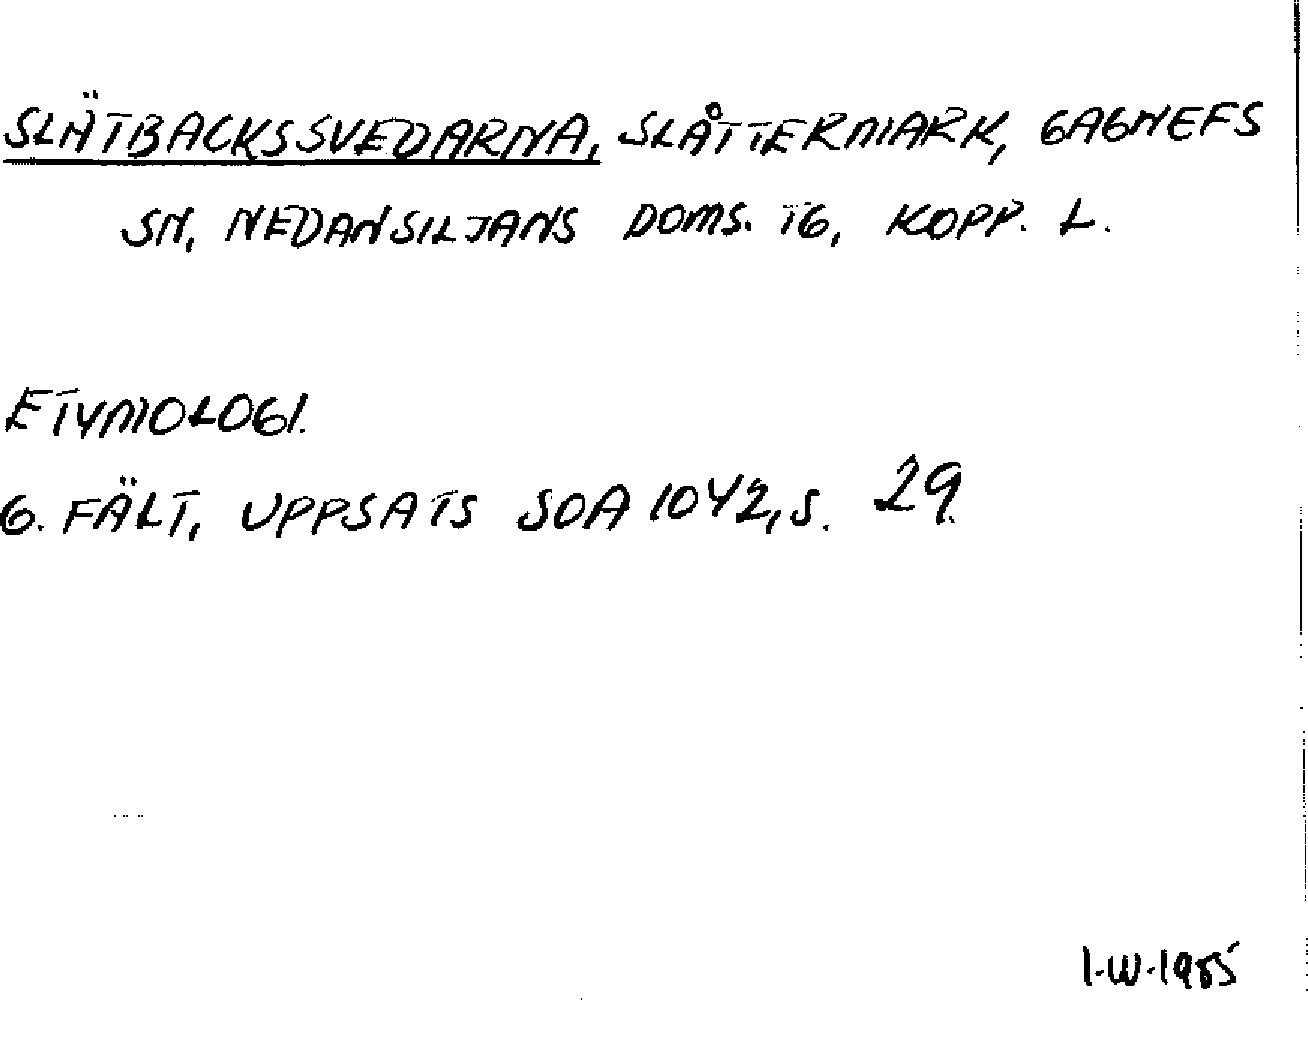 SLÄTBACKSSVEDARNA, SLÅTTERMARK, GAGNEFS
SN, NEDANSILJANS DOMS. TG, KOPP. L.
ETYMOLOGI.
G. FÄLT, UPPSATS SOA 1042, S. 29.
I.W.1985